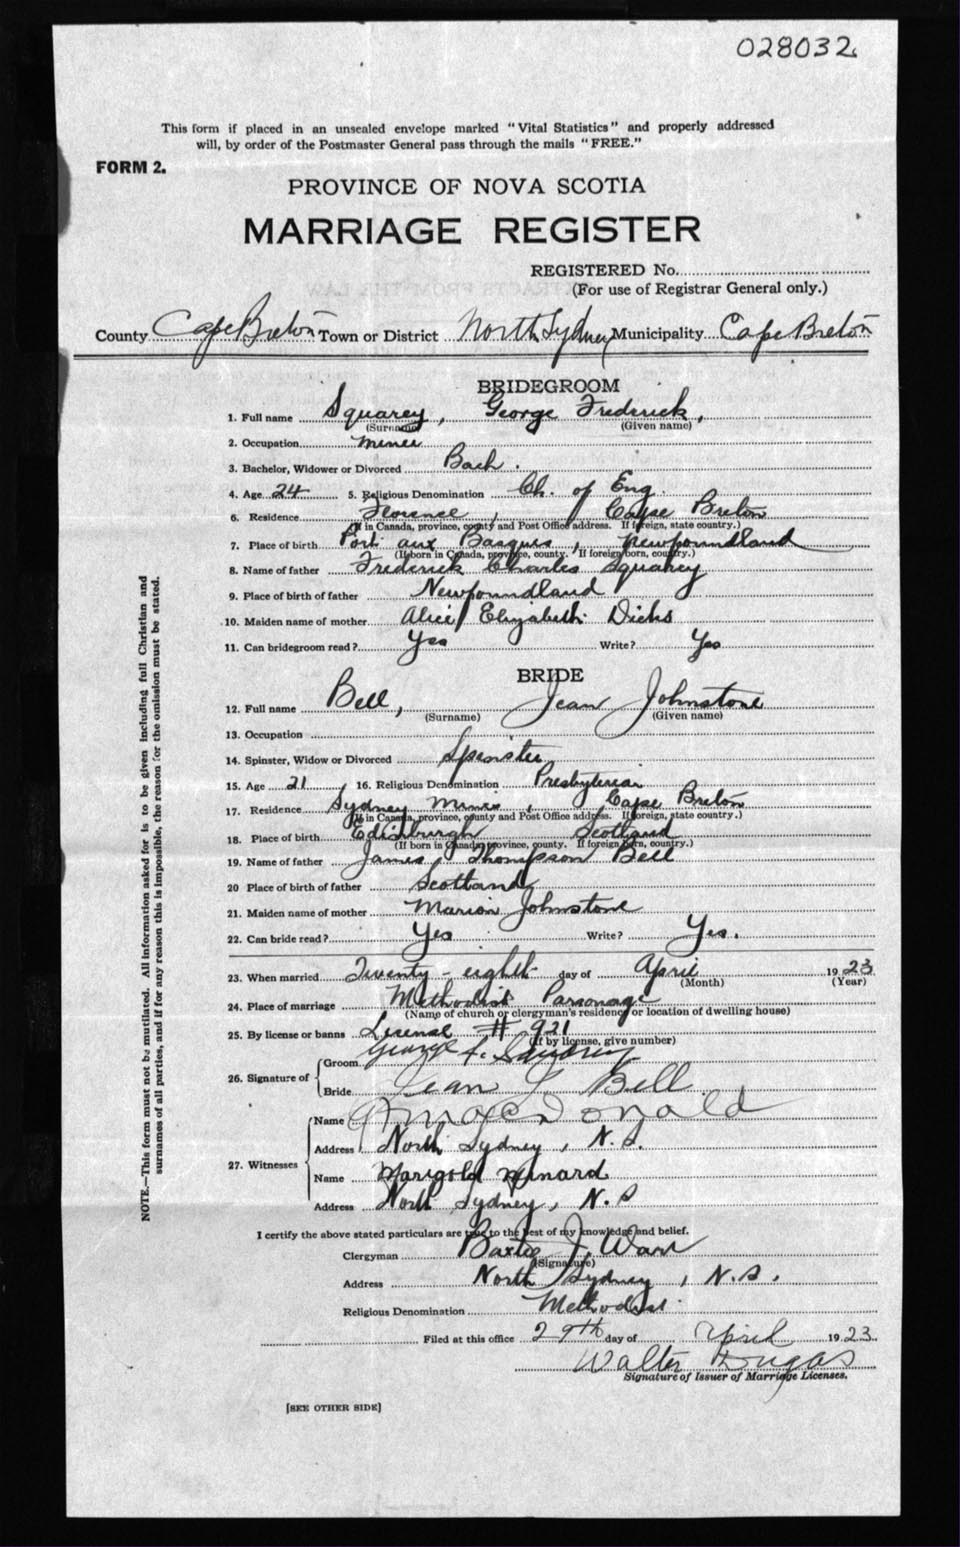 028032
This form if placed in an unsealed envelope marked "Vital Statistics" and properly addressed
will, by order of the Postmaster General pass through the mails "FREE."
FORM 2.
PROVINCE OF NOVA SCOTIA
MARRIAGE REGISTER
REGISTERED No.
(For use of Registrar General only.)
County Cape Breton Town or District North Sydney Municipality Cape Breton
BRIDEGROOM
1. Full name Squarey, George Frederick,
(Surname) (Given name)
2. Occupation miner
3. Bachelor, Widower or Divorced Bach.
4. Age 24 5. Religious Denomination Ch. of Eng.
6. Residence Florence, Cape Breton
(If in Canada, province, county and Post Office address. If foreign, state country.)
7. Place of birth Port aux Basques, Newfoundland
(If born in Canada, province, county. If foreign born, country.)
8. Name of father Frederick Charles Squarey
9. Place of birth of father Newfoundland
10. Maiden name of mother Alice Elizabeth Dicks
11. Can bridegroom read? Yes Write? Yes
BRIDE
12. Full name Bell, Jean Johnstone
(Surname) (Given name)
13. Occupation
14. Spinster, Widow or Divorced Spinster
15. Age 21 16. Religious Denomination Presbyterian
17. Residence Sydney Mines, Cape Breton
(If in Canada, province, county and Post Office address. If foreign, state country.)
18. Place of birth Edinburgh Scotland
(If born in Canada, province, county. If foreign born, country.)
19. Name of father James Thompson Bell
20 Place of birth of father Scotland
21. Maiden name of mother Marion Johnstone
22. Can bride read? Yes Write? Yes.
23. When married Twenty-eight day of April 1923
(Month) (Year)
24. Place of marriage Methodist Parsonage
(Name of church or clergyman's residence or location of dwelling house)
25. By license or banns License # 921
(If by license, give number)
26. Signature of Groom George F. Squarey
Bride Jean J. Bell
27. Witnesses Name MacDonald
Address North Sydney, N.S.
Name Marigold Minard
Address North Sydney, N.S
I certify the above stated particulars are true to the best of my knowledge and belief.
Clergyman J.
(Signature)
Address North Sydney, N.S.
Religious Denomination Methodist.
Filed at this office 29th day of April 1923.
Walter Dugas
Signature of Issuer of Marriage Licenses.
[SEE OTHER SIDE]
NOTE.—This form must not be mutilated. All information asked for is to be given including full Christian and
surnames of all parties, and if for any reason this is impossible, the reason for the omission must be stated.